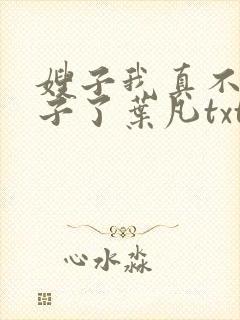 嫂子我真不
子了葉凡txt
心水淼